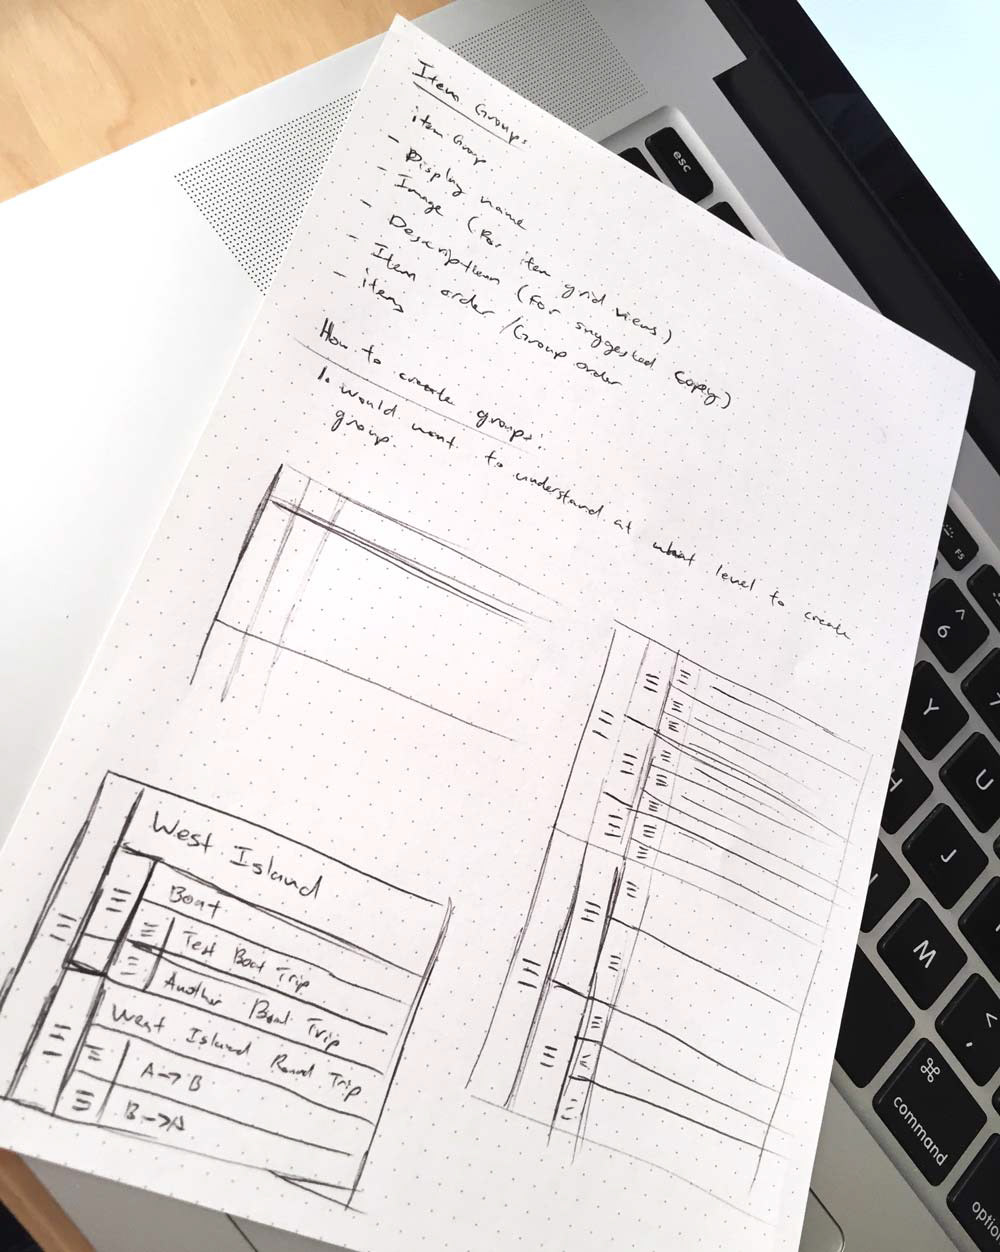 Item Groups
item Group
- Display name
- Image (for item grid views)
- Description (for suggested copy)
- Item order / Group order
- items
How to create groups:
1. would want to understand at what level to create
group.
West Island
Boat
Test Boat Trip
Another Boat Trip
West Island Round Trip
A → B
B → A
esc
F5
^
6
Y
7
H
U
J
M
<
,
⌘
command
option